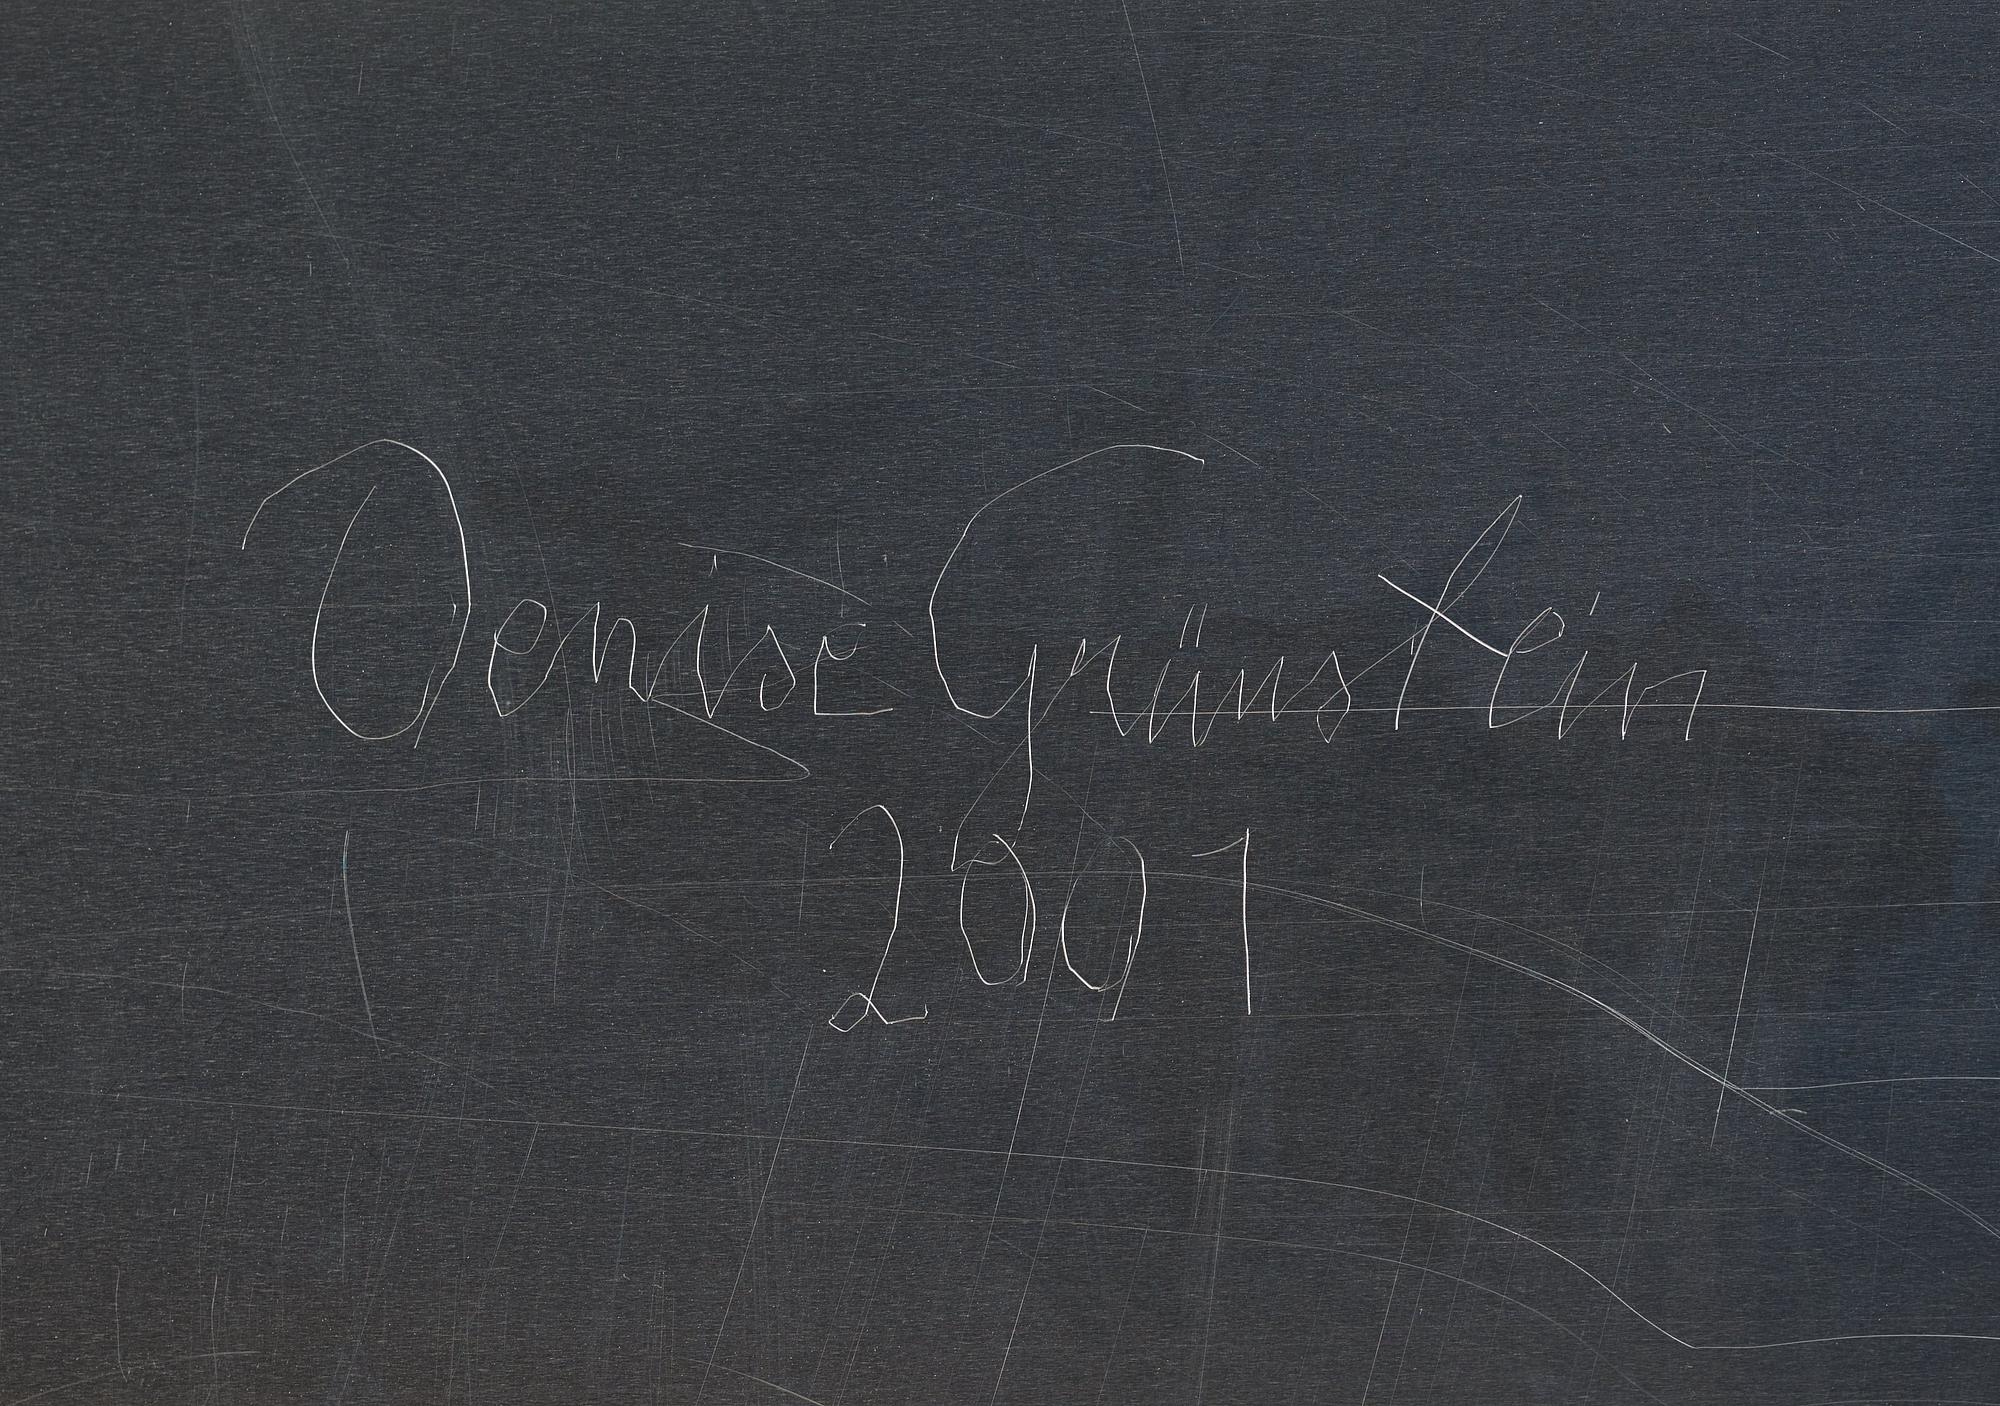 Denise Grünstein
2001